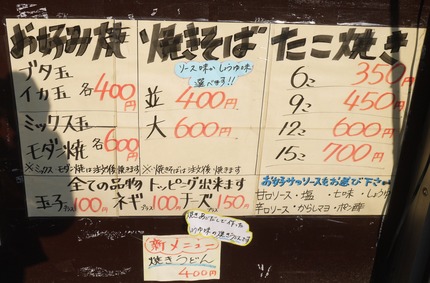 お好み焼
ブタ玉
イカ玉 各400円
ミックス玉
モダン焼 各600円
※ミックス、モダン焼は注文後焼きます
焼きそば
ソース味かしょうゆ味
選べます!!
並 400円
大 600円
※焼きそばは注文後焼きます
たこ焼き
6コ 350円
9コ 450円
12コ 600円
15コ 700円
全ての品物トッピング出来ます
玉子プラス100円 ネギプラス100円 チーズ 150円
お好みのソースをお選び下さい
甘口ソース・塩・七味・しょうゆ
辛口ソース・からしマヨ・ポン酢
新メニュー
焼きうどん
400円